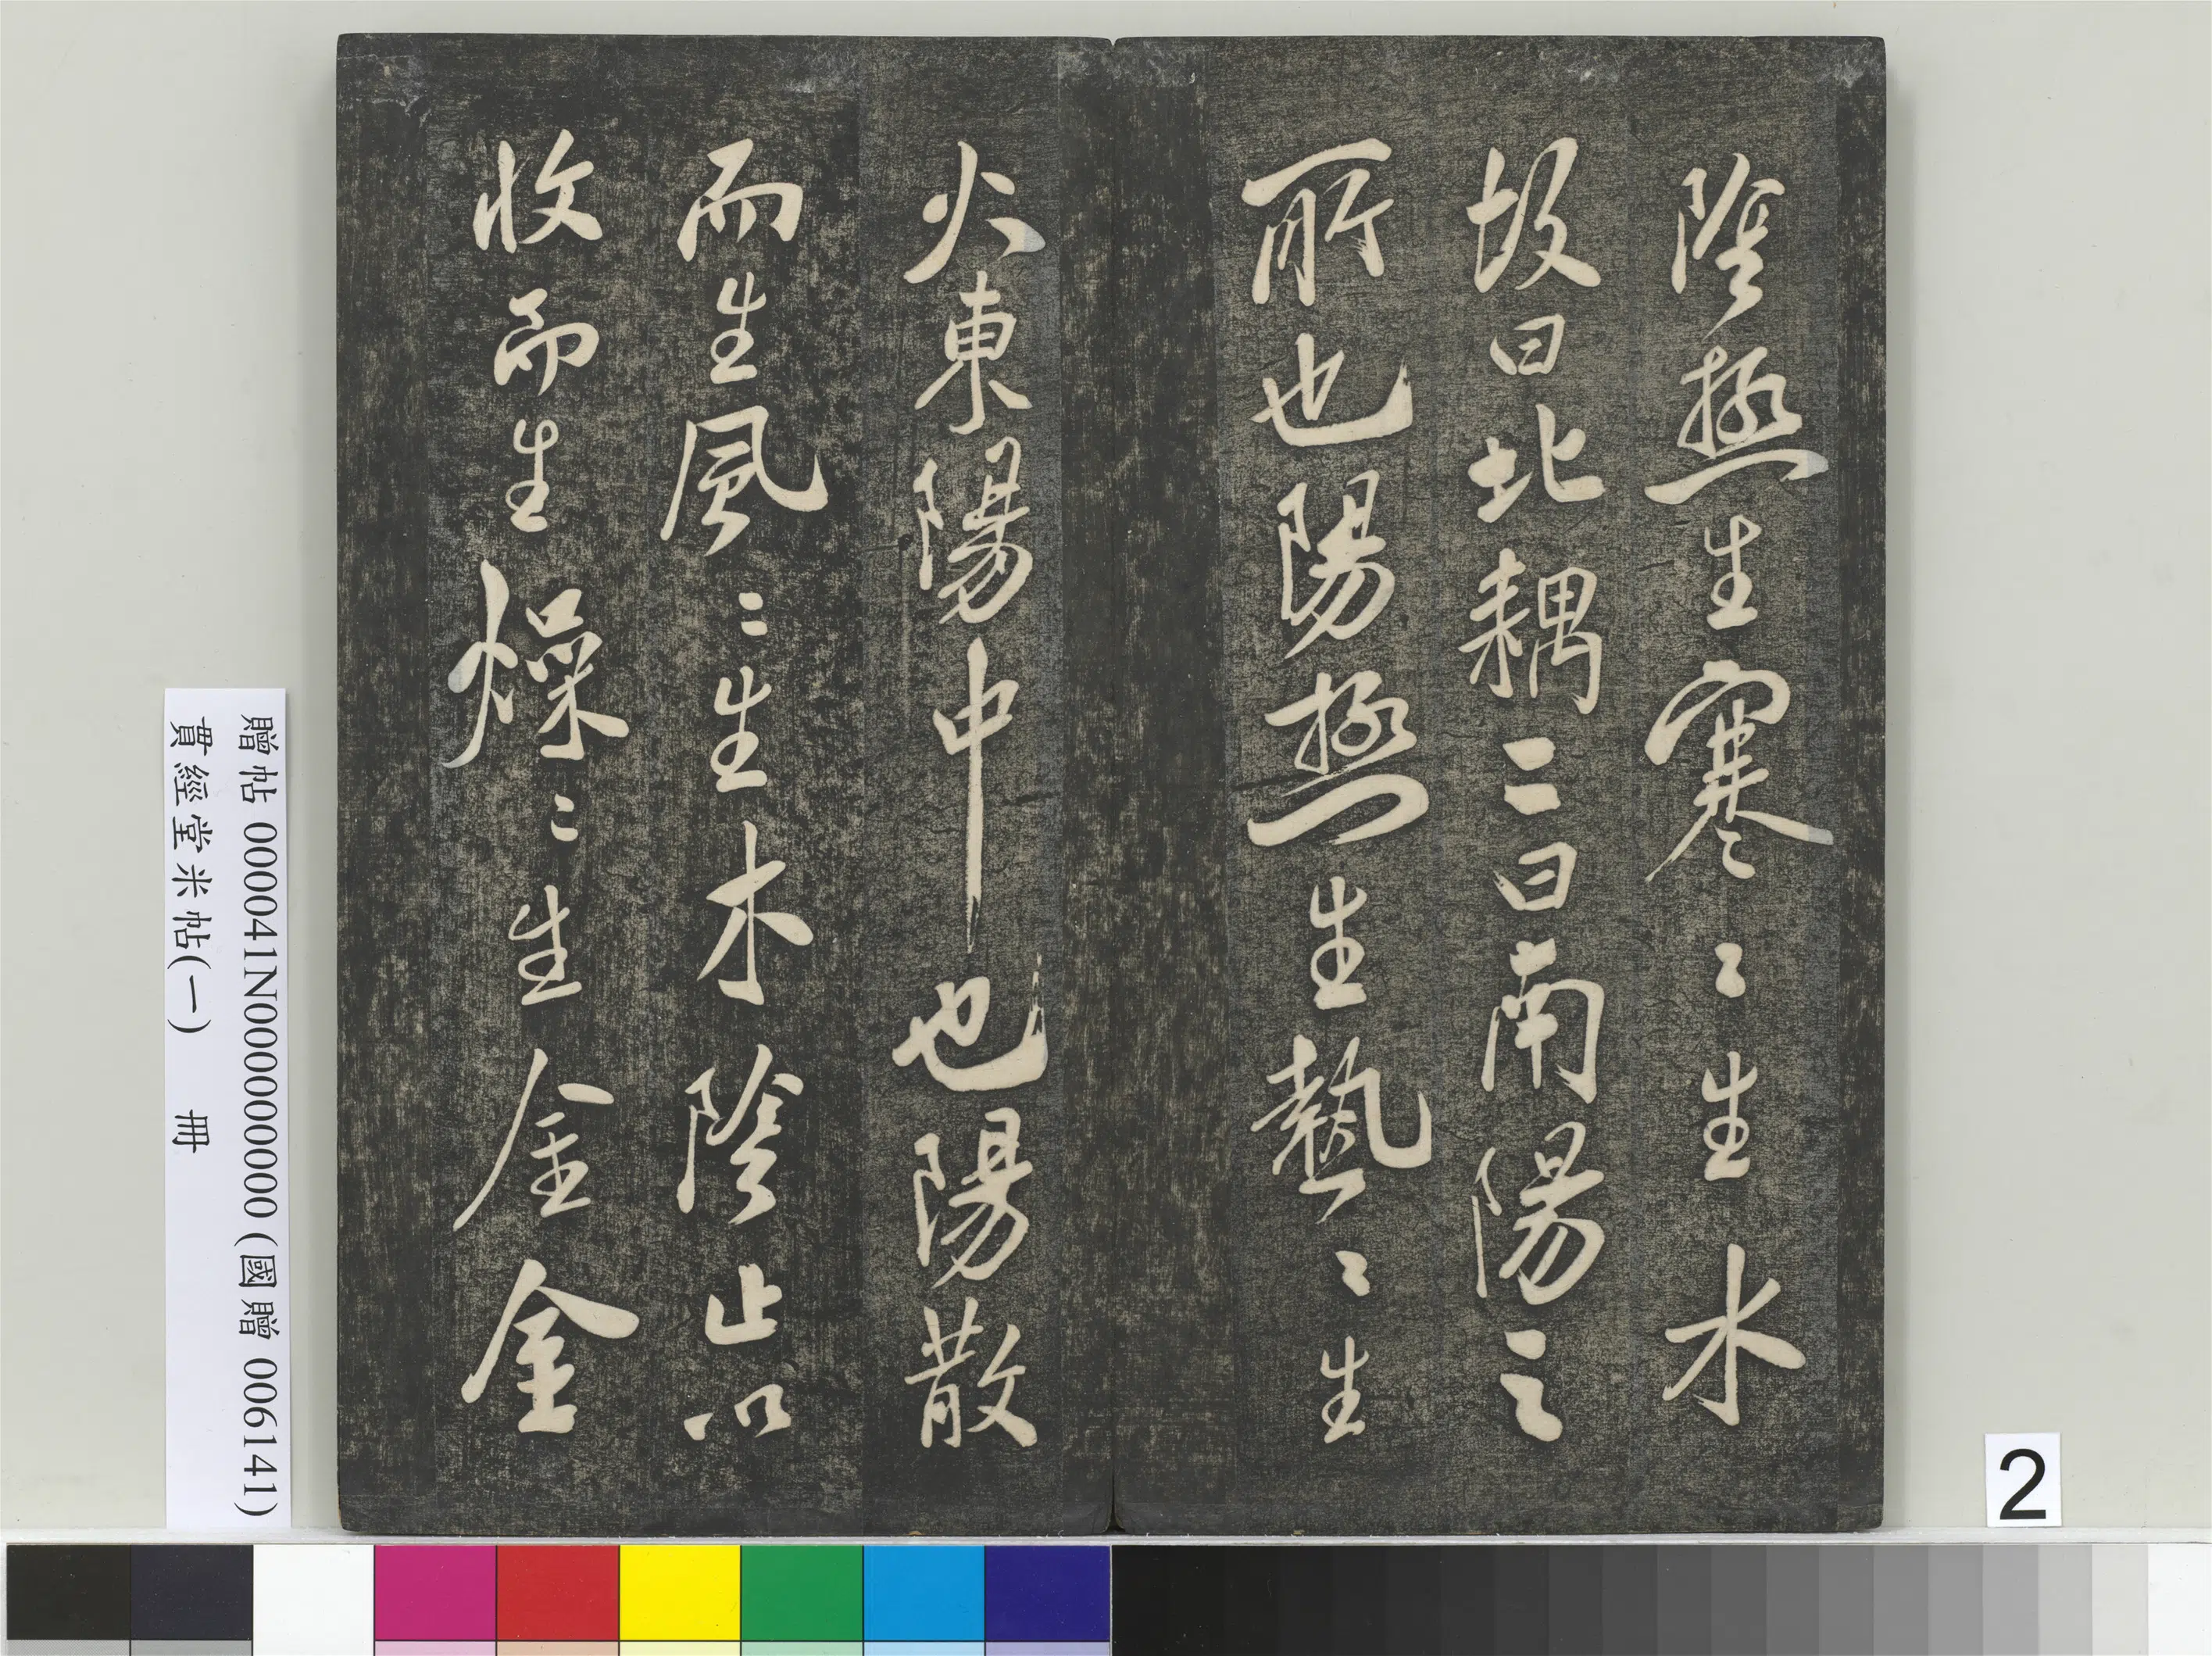 陰極生寒〻生水
故曰北耦二曰南陽之
所也陽極生熱〻生
火東陽中也陽散
而生風〻生木陰止以
收而生燥〻生金金
贈帖 000041N000000000 (國贈 006141)
貫經堂米帖(一) 冊
2